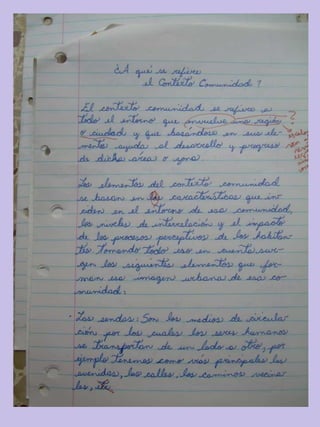 ¿A que se refiere
el Contexto Comunidad?
El contexto comunidad se refiere a
todo el entorno que envuelve una región
o ciudad y que basandose en sus ele-
mentos ayuda al desarrollo y progreso
de dicha area o zona.
Los elementos del contexto comunidad
se basan en las características que in-
ciden en el entorno de esa comunidad,
los niveles de interrelación y el impacto
de los procesos perceptivos de los habitan-
tes tomando todo eso en cuenta sur-
gen los siguientes elementos que for-
man esa imagen urbana de esa co-
munidad:
· Las sendas: Son los medios de circula-
ción por los cuales los seres humanos
se transportan de un lado a otro, por
ejemplo tenemos como vías principales las
avenidas, las calles, los caminos vecina-
les, etc.